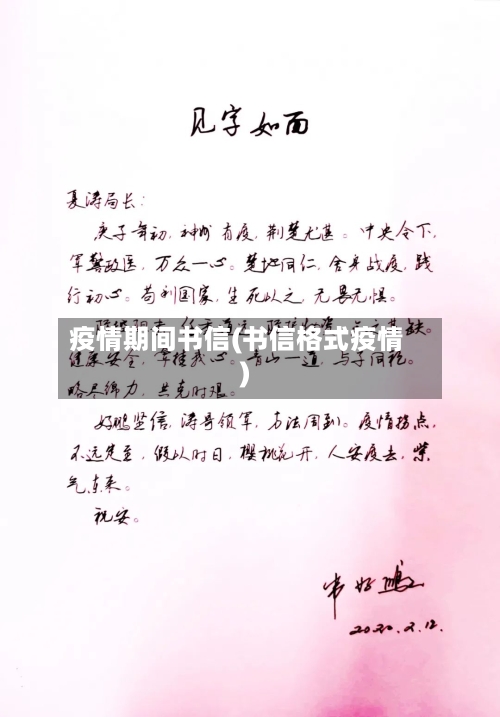 见字如面
夏涛局长：
庚子年初，神州有疫，荆楚尤甚。中央令下，
军警政医，万众一心。楚地同仁，舍身战疫，践
行初心。苟利国家，生死以之，无畏无惧。
疫情期间书信(书信格式疫情
)
健康安全，牵挂我心。青山一道，与子同袍。
略尽绵力，共克时艰。
好鹏坚信，涛哥领军，方法周到。疫情拐点，
不远将至，假以时日，樱桃花开，人安疫去，紫
气东来。
祝安。
韦好鹏
2020.2.12.